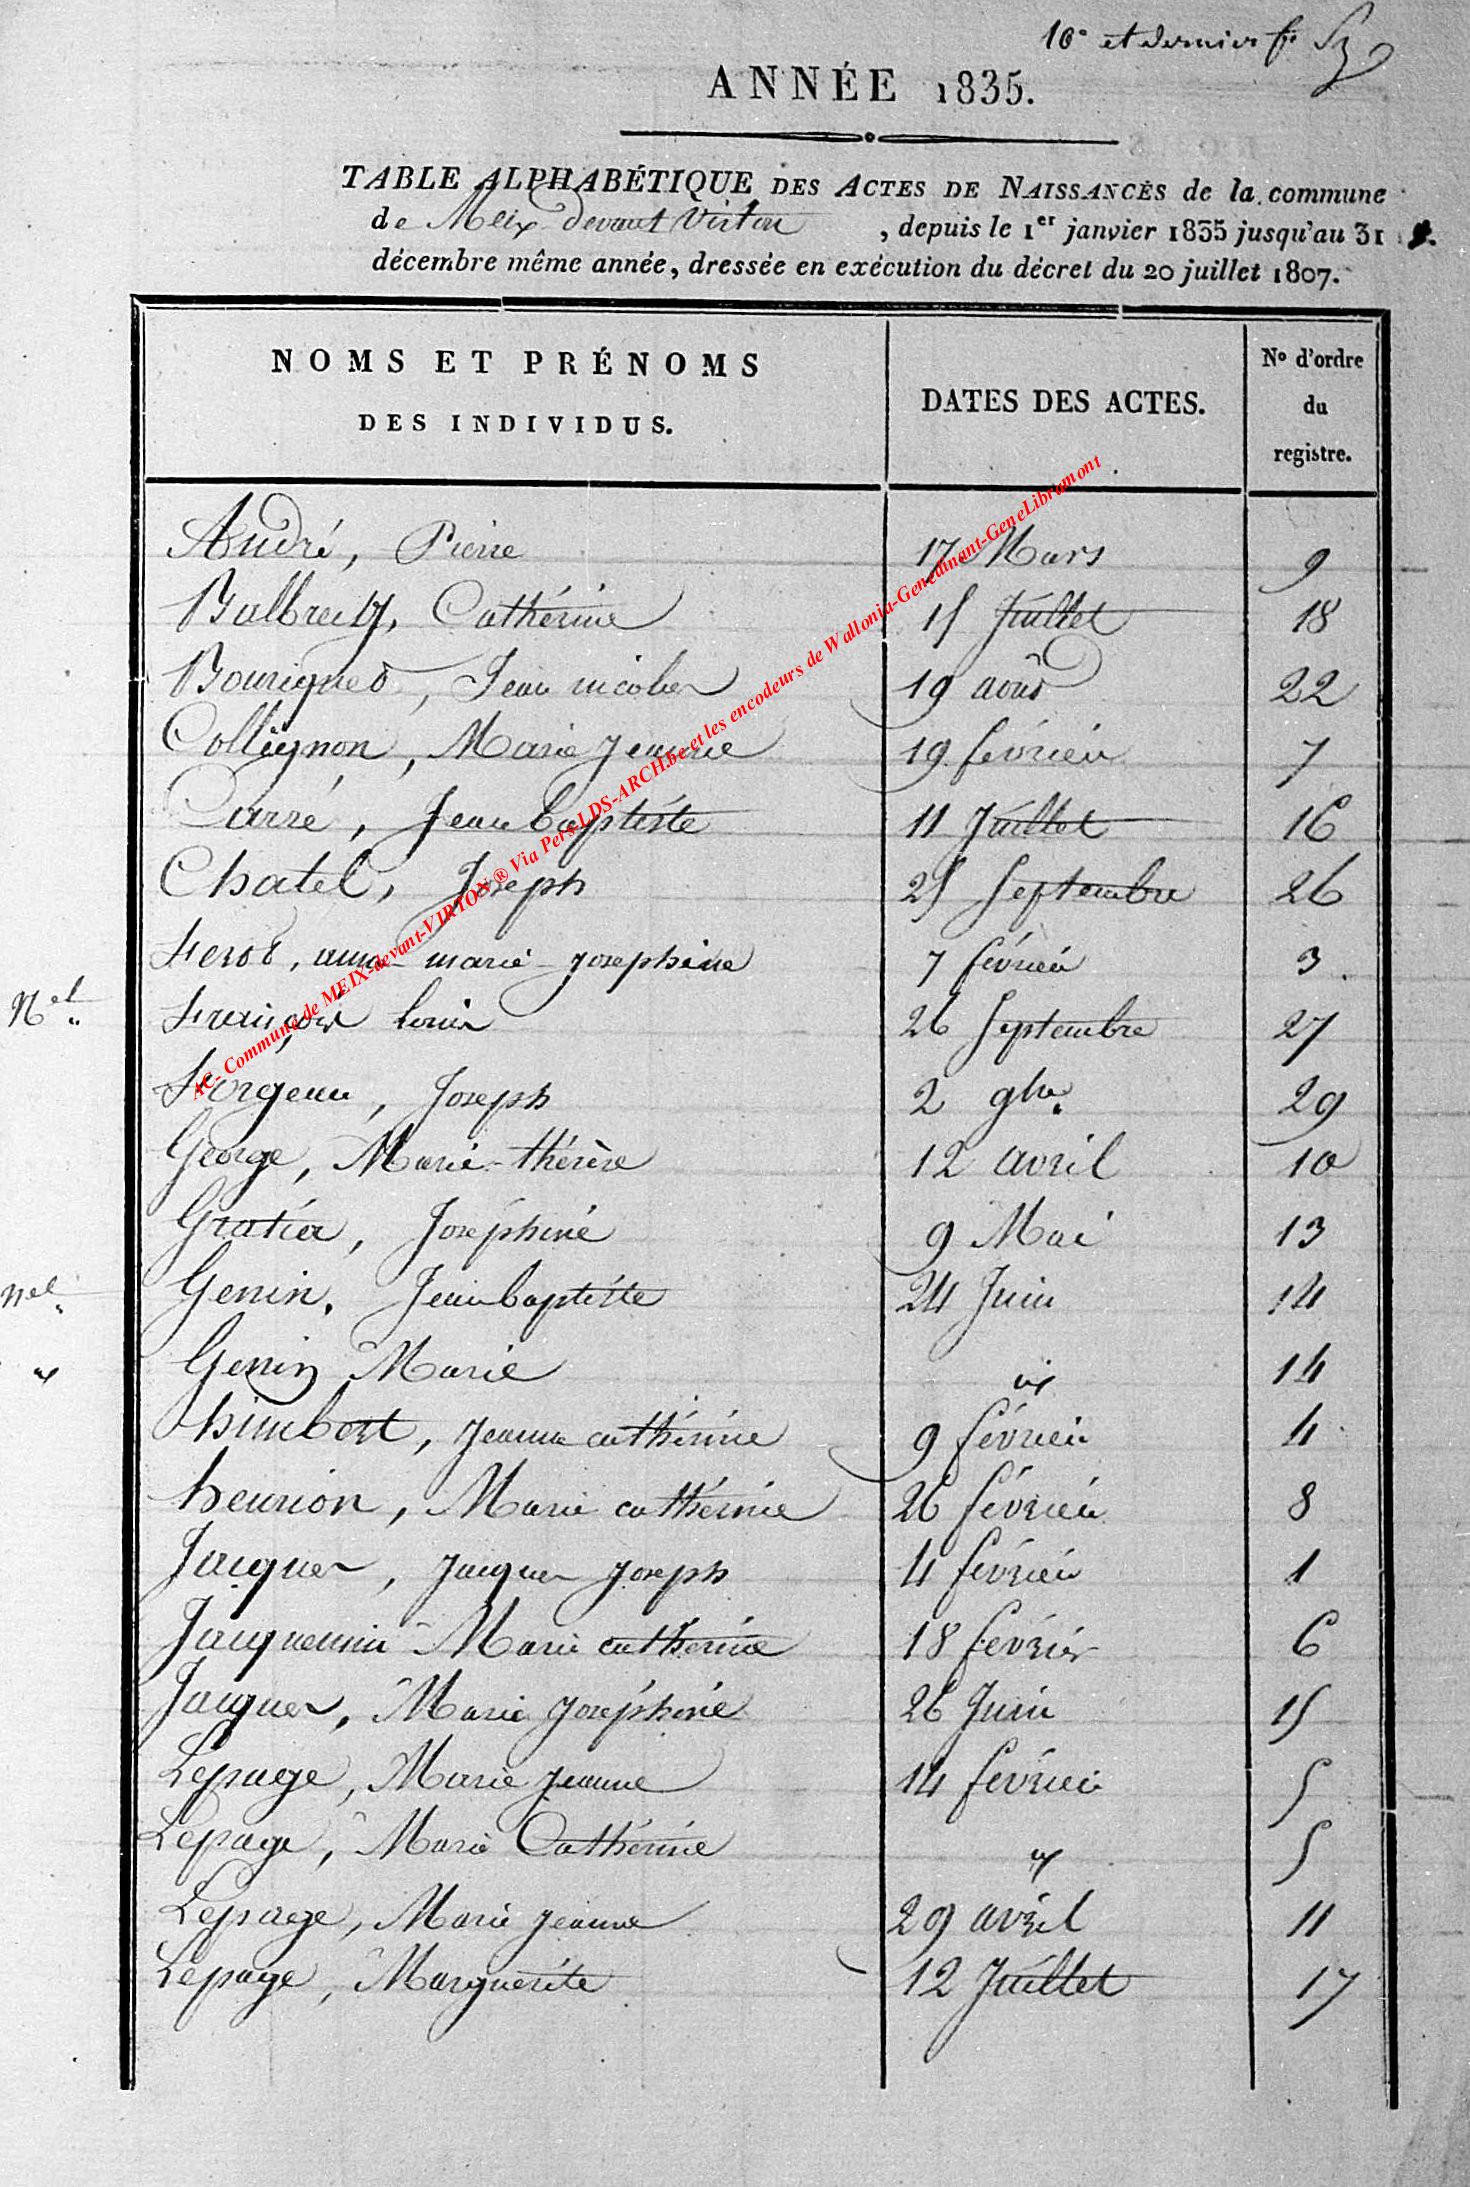 10e et dernier f
ANNÉE 1835.
TABLE ALPHABÉTIQUE DES ACTES DE NAISSANCES de la commune
de Meix devant Virton, depuis le 1er janvier 1835 jusqu'au 31
décembre même année, dressée en exécution du décret du 20 juillet 1807.
NOMS ET PRÉNOMS
DES INDIVIDUS.
DATES DES ACTES.
No d'ordre
du
registre.
André, Pierre 17 Mars 9
Cathérine 15 Juillet 18
Bourignet, Jean nicolas 19 août 22
Collignon, Marie Jeanne 19 février 7
Carré, Jean baptiste 11 Juillet 16
Chatel, Joseph 25 Septembre 26
Ferot, anne marie josephine 7 février 3
Nel. François louis 26 Septembre 27
Forgeau, Joseph 2 9bre. 29
George, Marie-thérèse 12 avril 10
Gratia, Joséphine 9 Mai 13
nel. Genin, Jean baptiste 24 Juin 14
Genin Marie 14
himbert, jeanne cathérine 9 février 4
henrion, Marie cathérine 26 février 8
Jacques, jacques joseph 4 février 1
Jacquemin Marie catherine 18 février 6
Jacques, Marie Joséphine 26 Juin 15
Lepage, Marie jeanne 14 février 5
Lepage, Marie Cathérine 5
Lepage, Marie jeanne 29 avril 11
Lepage, Marguerite 12 Juillet 17
4C- Commune de MEIX-devant-VIRTON ® Via Pers-LDS-ARCH.be et les encodeurs de Wallonia-Genedinant-GeneLibramont